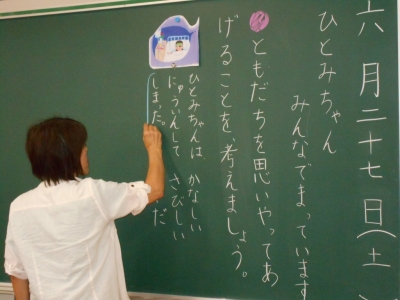 六月二十七日(土)
ひとみちゃん
みんなでまっています
ともだちを思いやってあ
げることを、考えましょう。
ひとみちゃんは かなしい
にゅういんして さびしい
しまった。 だ